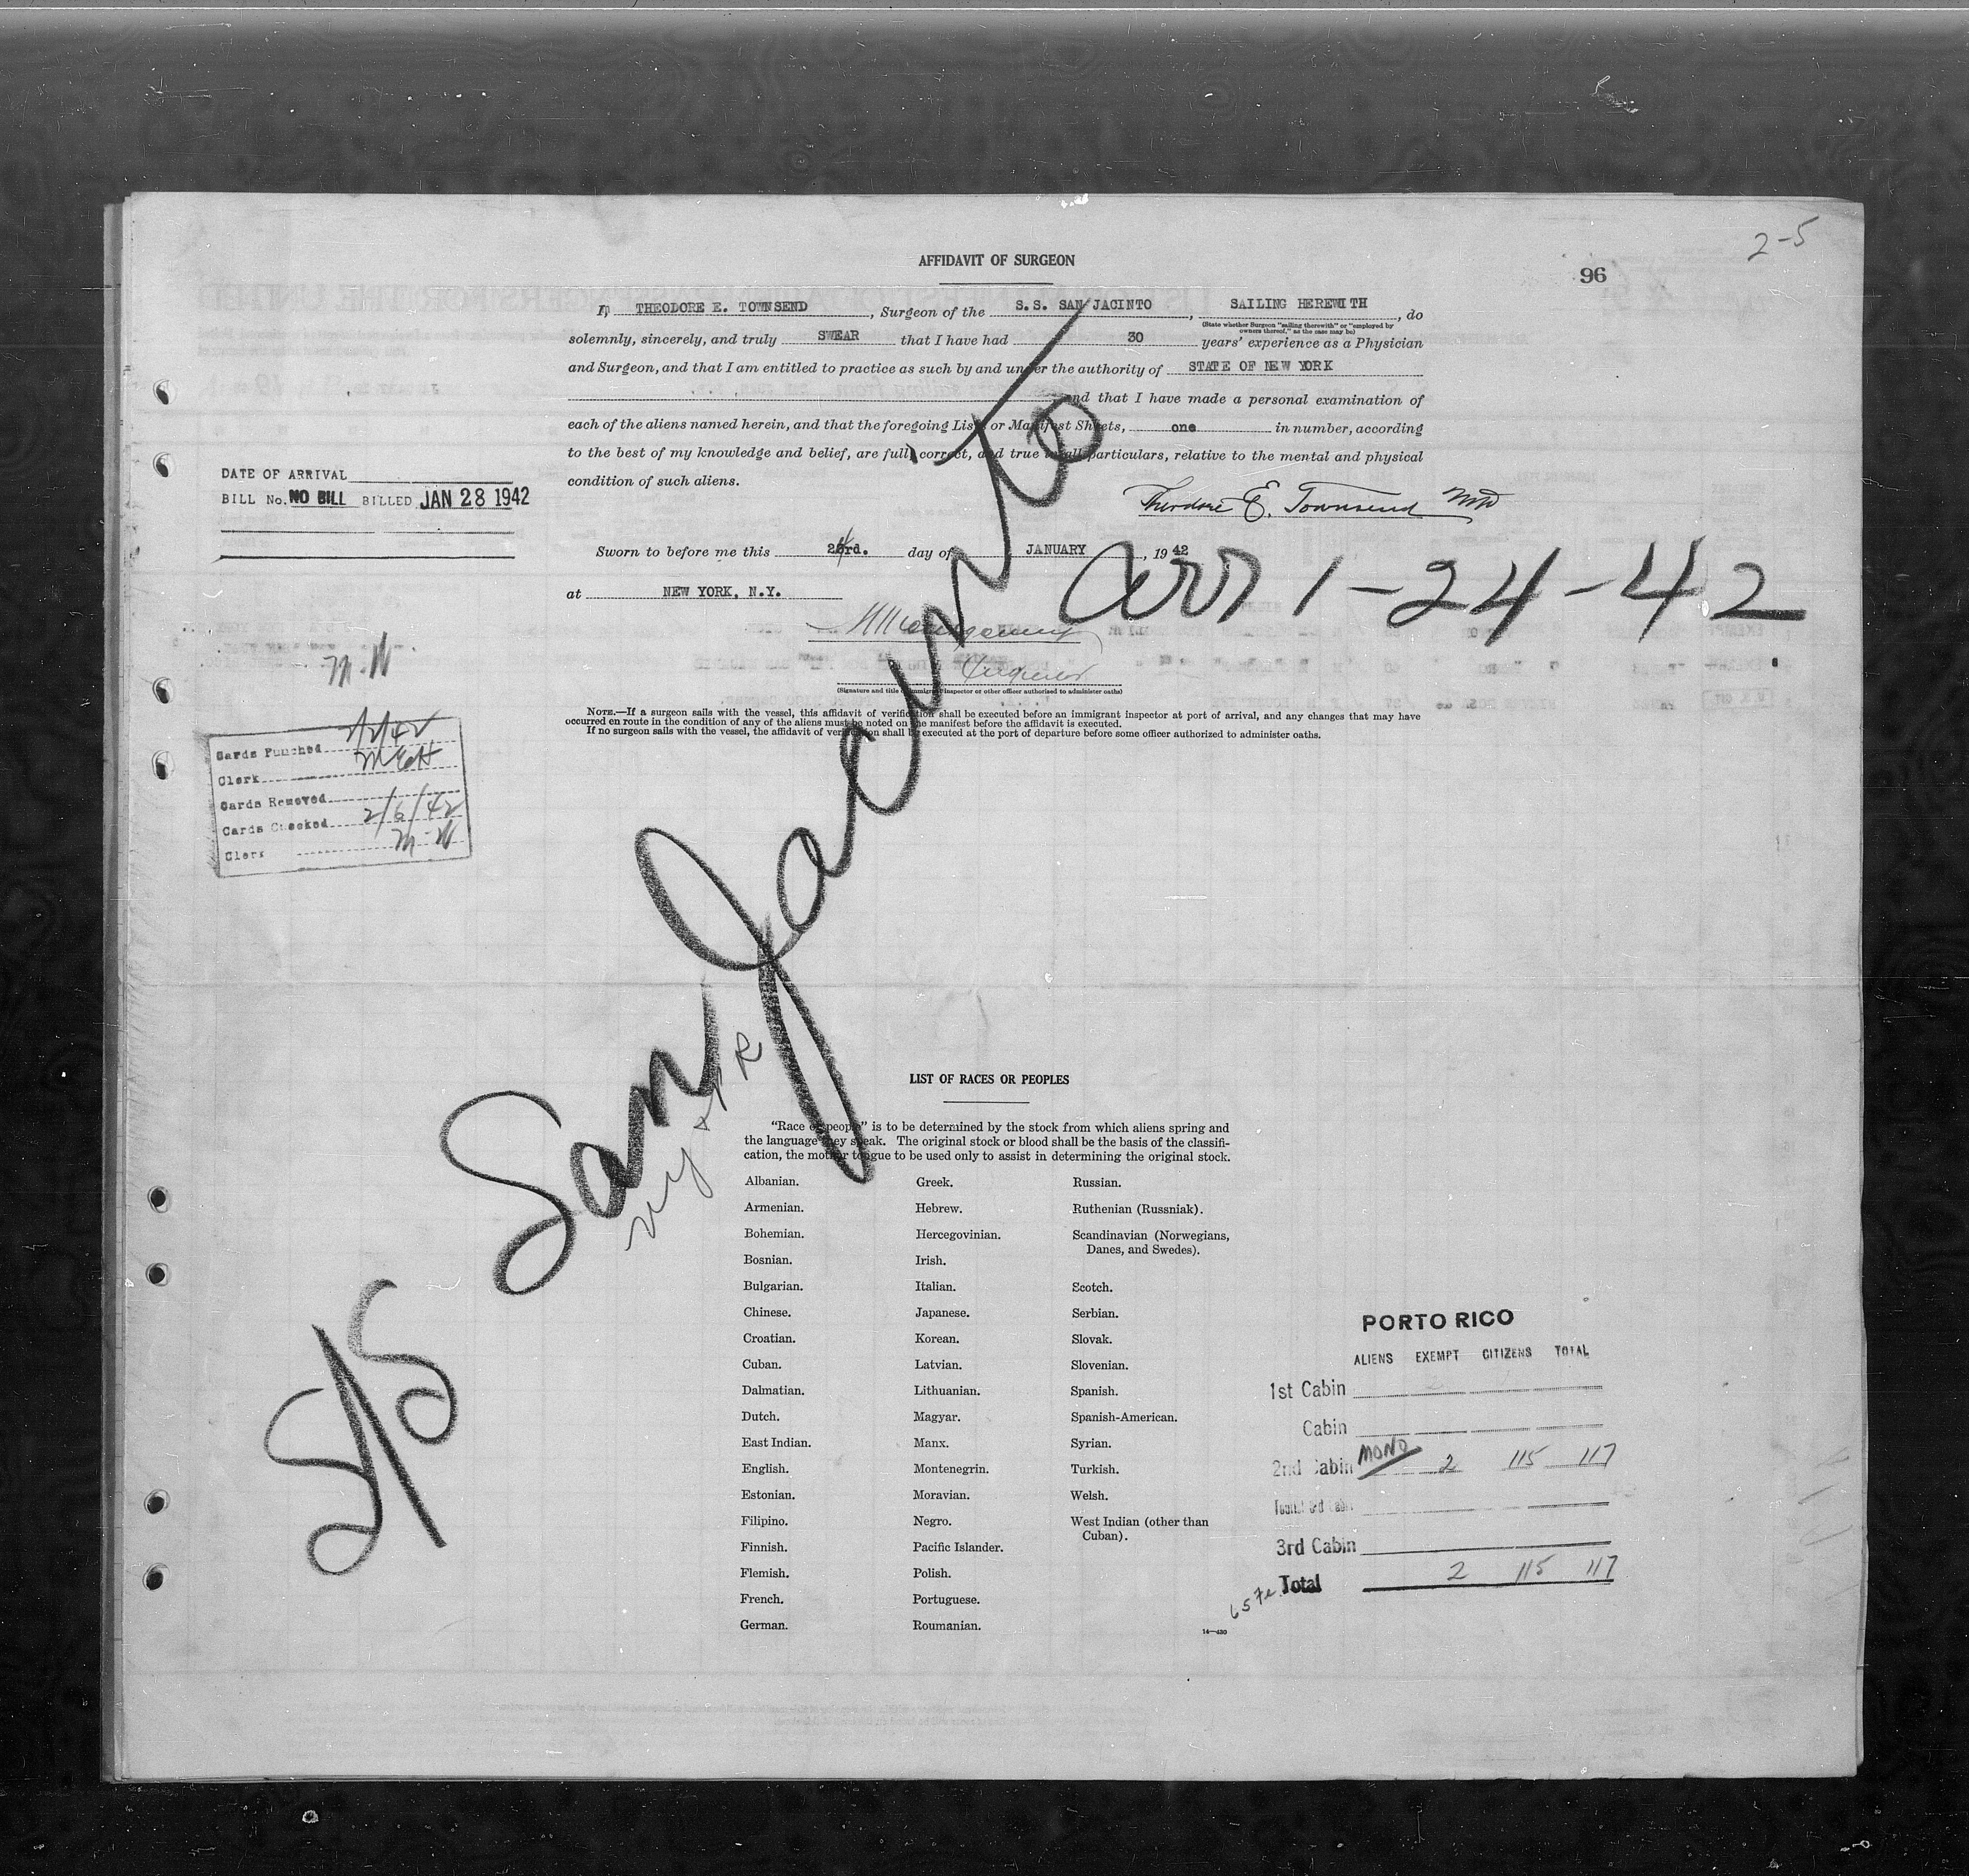 2-5
96
AFFIDAVIT OF SURGEON
I, THEODORE E. TOWNSEND, Surgeon of the S.S. SAN JACINTO, SAILING HEREWITH, do
(State whether Surgeon "sailing therewith" or "employed by
owners thereof," as the case may be)
solemnly, sincerely, and truly SWEAR that I have had 30 years' experience as a Physician
and Surgeon, and that I am entitled to practice as such by and under the authority of STATE OF NEW YORK
and that I have made a personal examination of
each of the aliens named herein, and that the foregoing Lists or Manifest Sheets, one in number, according
to the best of my knowledge and belief, are full, correct, and true in all particulars, relative to the mental and physical
condition of such aliens.
Theodore E. Townsend MD
DATE OF ARRIVAL
BILL No. NO BILL BILLED JAN 28 1942
Sworn to before me this 24rd. day of JANUARY, 1942
at NEW YORK, N.Y.
Arr 1-24-42
(Signature and title of immigrant inspector or other officer authorized to administer oaths)
NOTE.—If a surgeon sails with the vessel, this affidavit of verification shall be executed before an immigrant inspector at port of arrival, and any changes that may have
occurred en route in the condition of any of the aliens must be noted on the manifest before the affidavit is executed.
If no surgeon sails with the vessel, the affidavit of verification shall be executed at the port of departure before some officer authorized to administer oaths.
Cards Punched 2/2/42
Clerk
Cards Removed
Cards Checked 2/6/42
Clerk
S/S San Jacinto
NY & PR
LIST OF RACES OR PEOPLES
"Race or people" is to be determined by the stock from which aliens spring and
the language they speak. The original stock or blood shall be the basis of the classifi-
cation, the mother tongue to be used only to assist in determining the original stock.
Albanian.
Armenian.
Bohemian.
Bosnian.
Bulgarian.
Chinese.
Croatian.
Cuban.
Dalmatian.
Dutch.
East Indian.
English.
Estonian.
Filipino.
Finnish.
Flemish.
French.
German.
Greek.
Hebrew.
Hercegovinian.
Irish.
Italian.
Japanese.
Korean.
Latvian.
Lithuanian.
Magyar.
Manx.
Montenegrin.
Moravian.
Negro.
Pacific Islander.
Polish.
Portuguese.
Roumanian.
Russian.
Ruthenian (Russniak).
Scandinavian (Norwegians,
Danes, and Swedes).
Scotch.
Serbian.
Slovak.
Slovenian.
Spanish.
Spanish-American.
Syrian.
Turkish.
Welsh.
West Indian (other than
Cuban).
14—430
PORTO RICO
ALIENS EXEMPT CITIZENS TOTAL
1st Cabin
Cabin
2nd Cabin MONO 2 115 117
3rd Cabin
Total 2 115 117